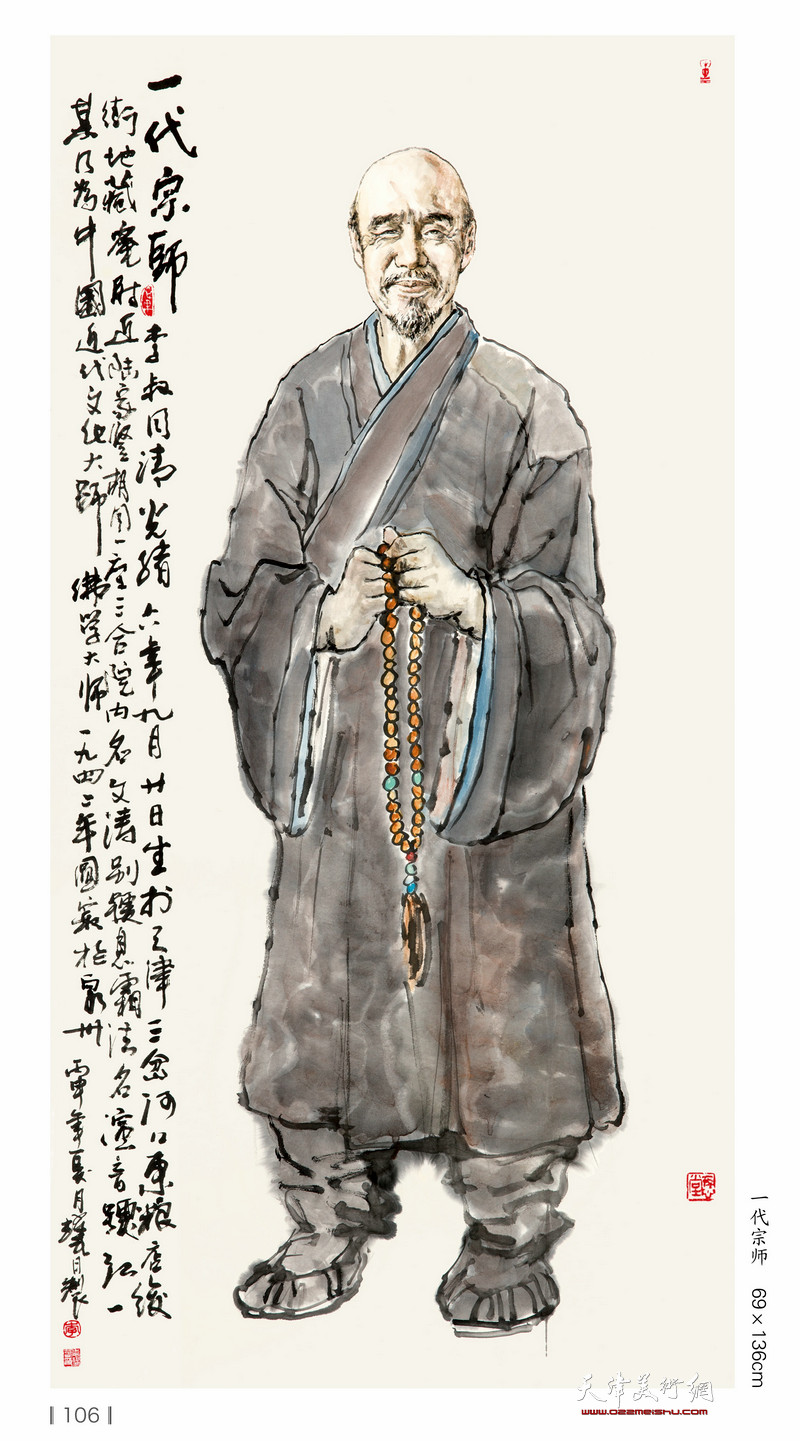 一代宗师
李叔同清光绪六年九月廿日生于天津三岔河口原粮店后
街地藏庵附近陆家竖胡同一座三合院内名文涛别号息霜法名演音号弘一
其乃为中国近代文化大师佛学大师一九四二年圆寂于泉州
丙申年夏月
日制
一代宗师 69×136cm
106
天津美術網
www.022meishu.com